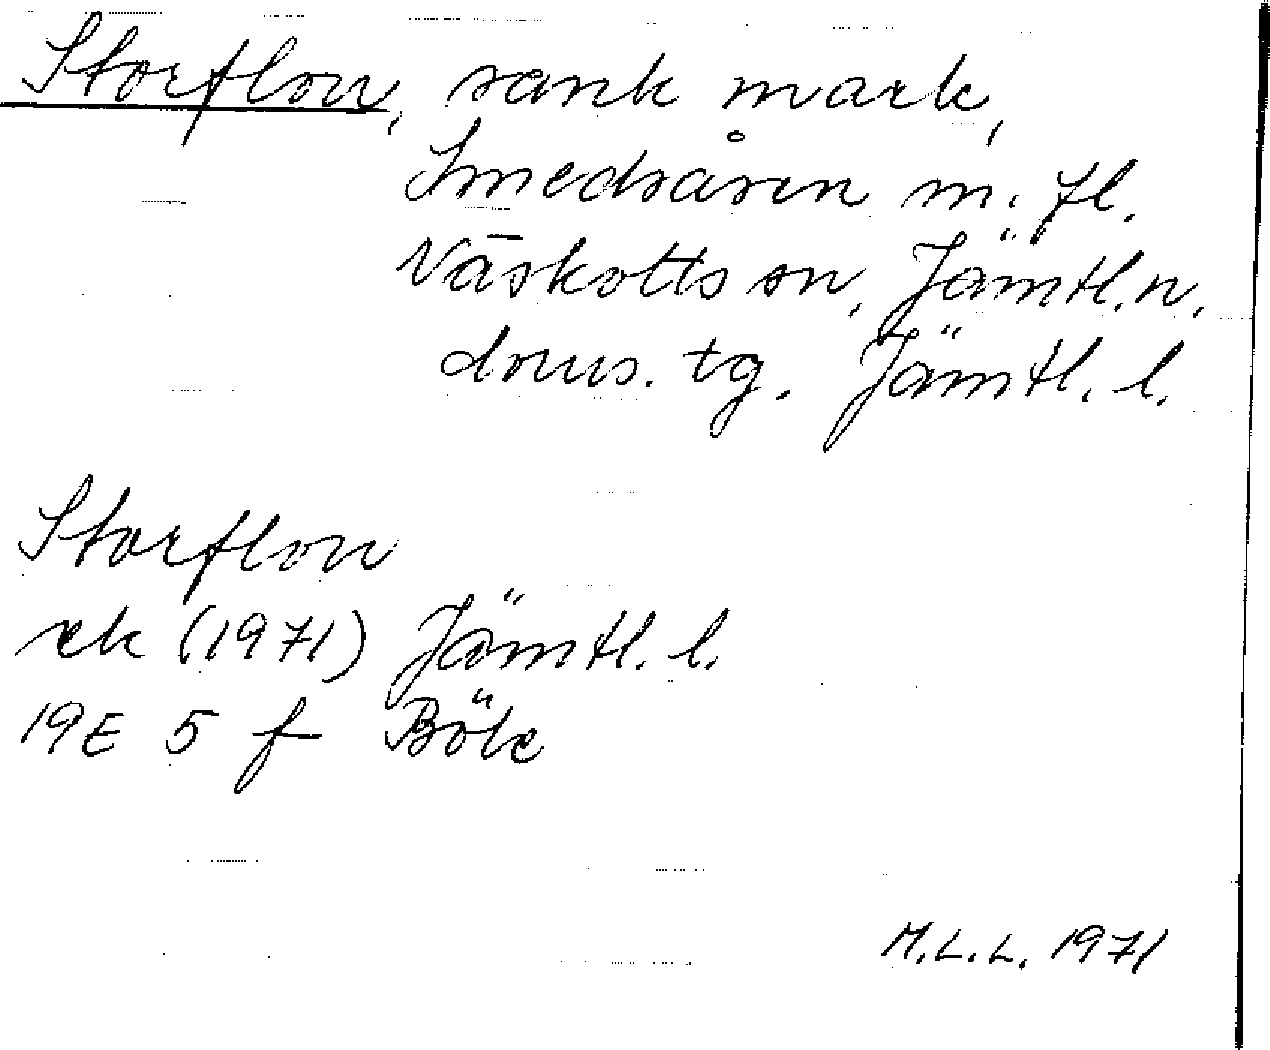 Storflon, sank mark,
Smedsåsen m. fl.
Näskotts sn, Jämtl. n.
doms. tg. Jämtl. l.
Storflon
ek (1971) Jämtl. l.
19E 5 f Böle
M.L.L. 1971